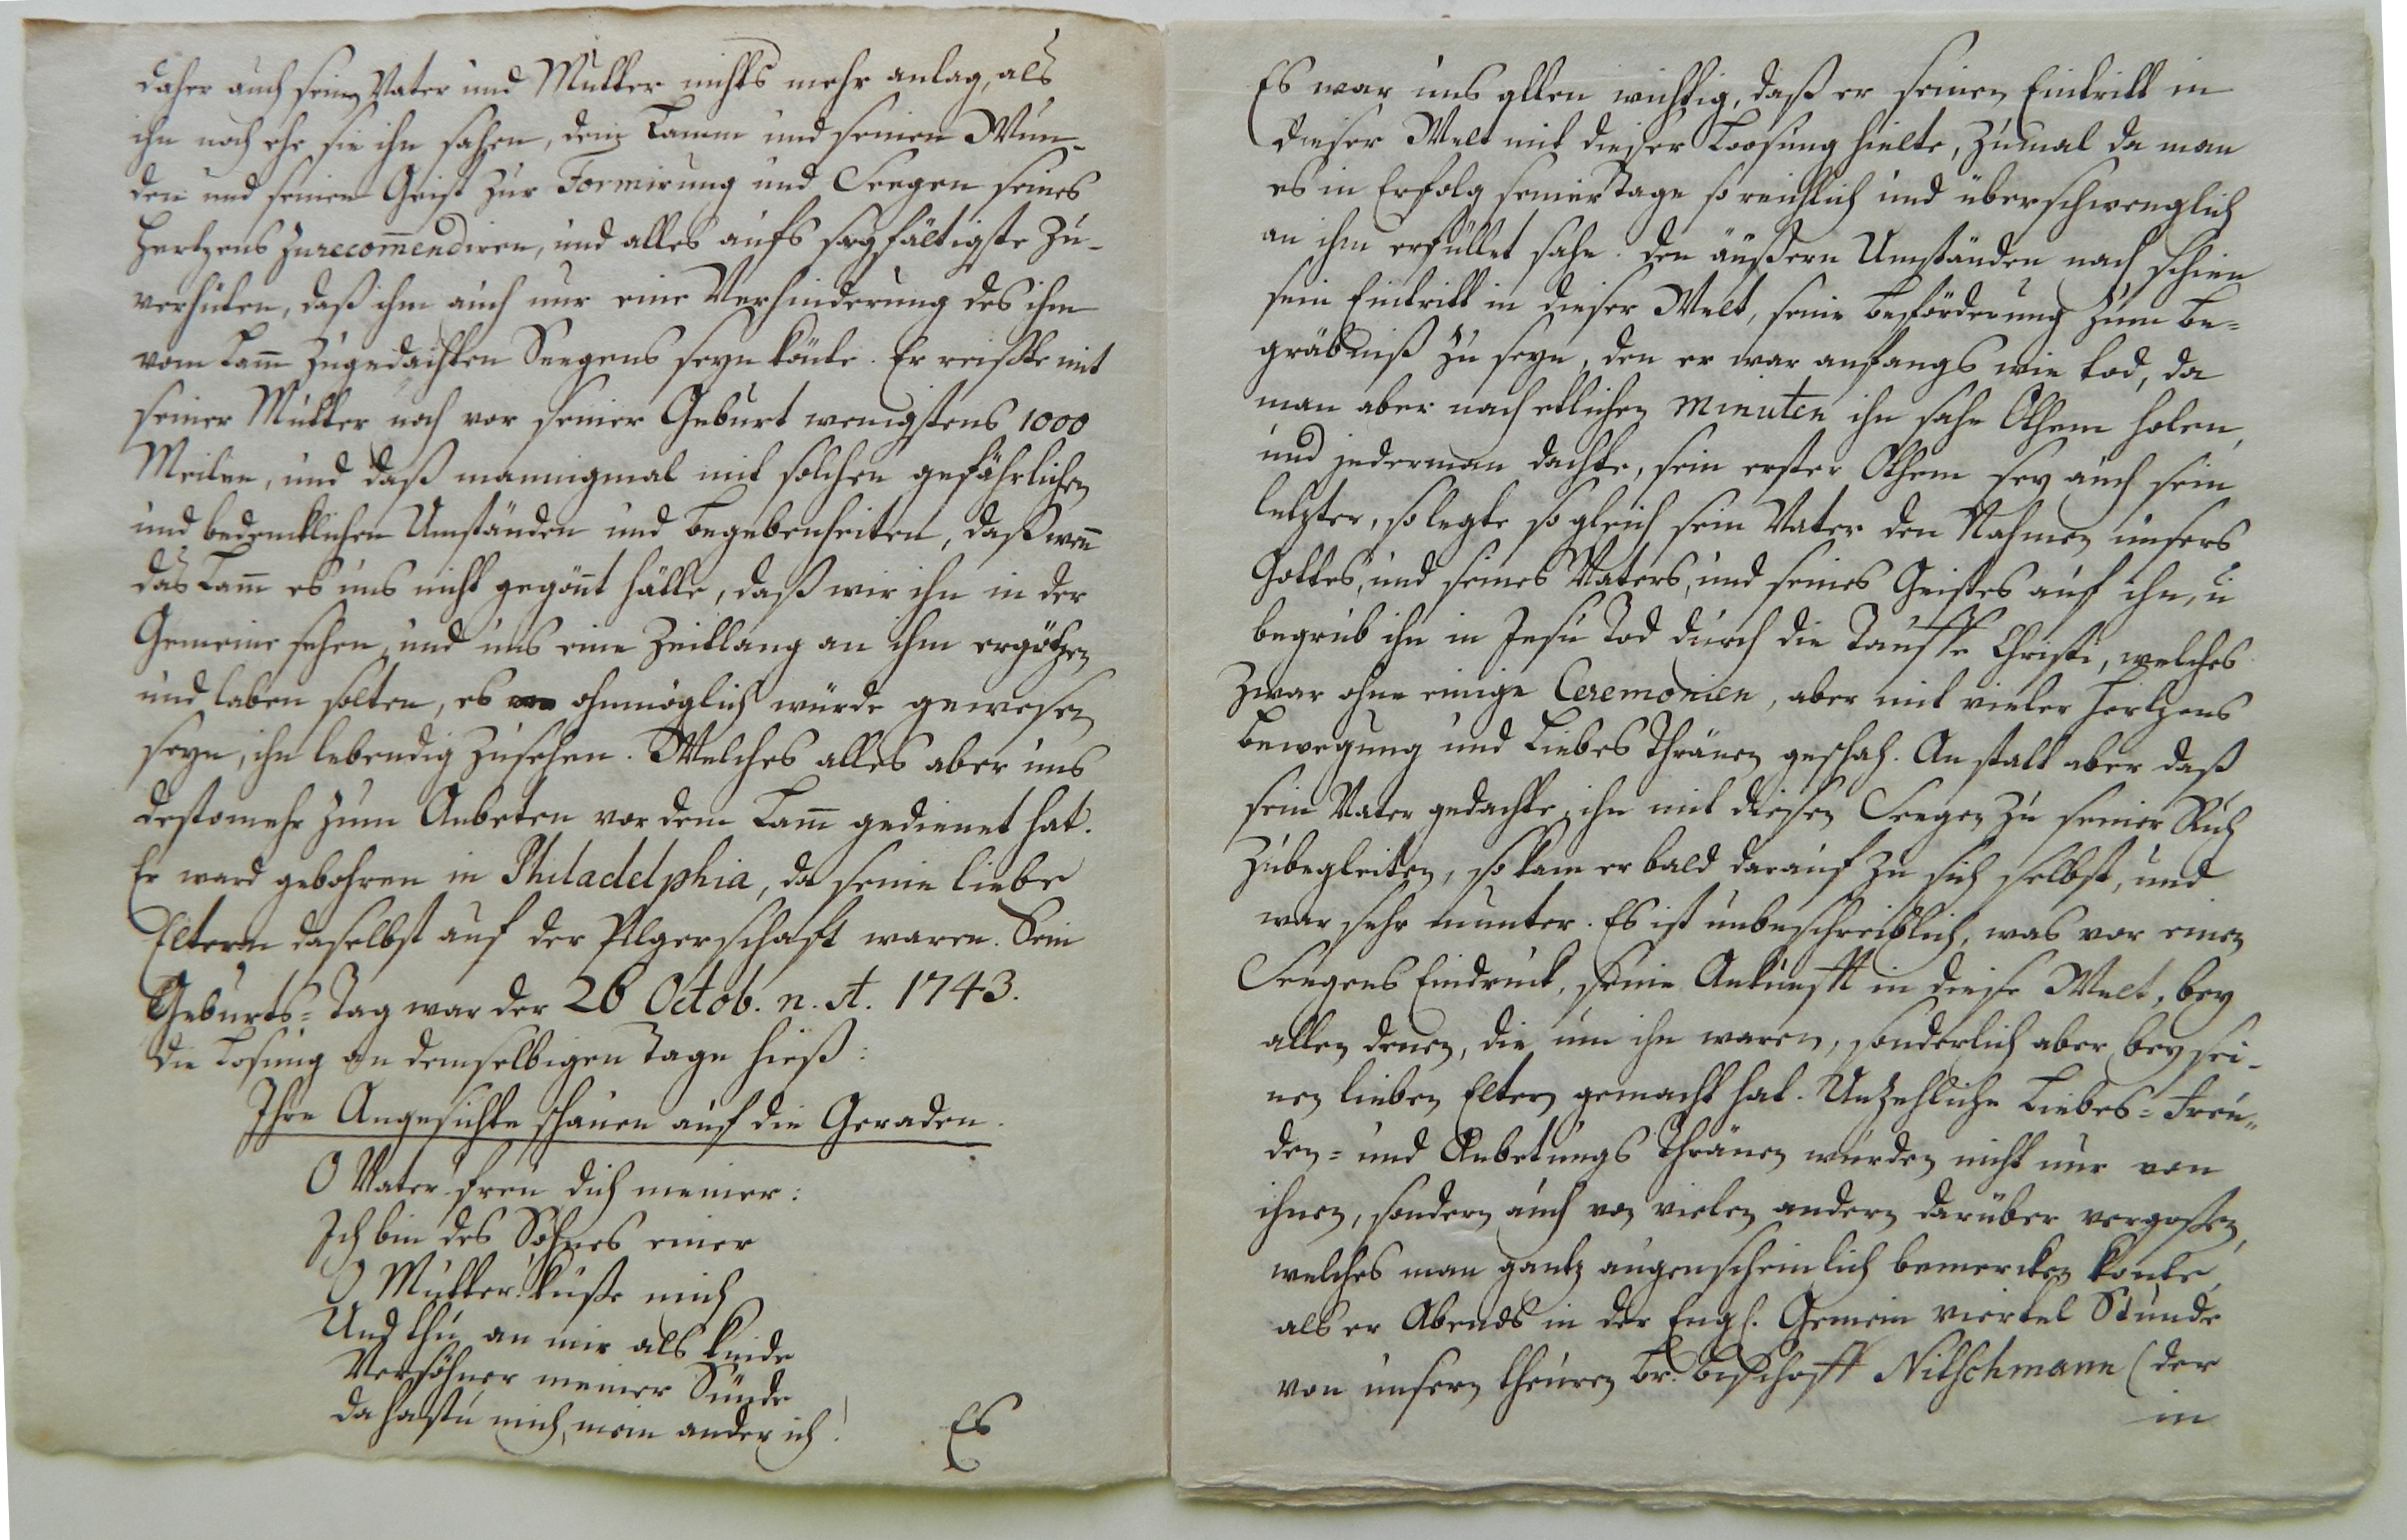 daher auch seinen Vater und Mutter nichts mehr anlag, als
ihn noch ehe sie ihn sahen, dem Lamm und seinen Wun-
den und seinem Geist zur Formirung und Seegen seines
Hertzens zu recom̄endiren, und alles aufs sorgfältigste zu-
verhüten, daß ihm auch nur eine Verhinderung des ihm
vom Lam̄ zugedachten Seegens seyn könte. Er reißte mit
seiner Mutter noch vor seiner Geburt wenigstens 1000
Meilen, und daß mannigmal mit solchen gefährlichen
und bedencklichen Umständen und Begebenheiten, daß weñ
das Lam̄ es uns nicht gegöñt hätte, daß wir ihn in der
Gemeine sehen, und uns eine Zeitlang an ihm ergötzen
und laben solten, es ohnmöglich würde gewesen
seyn, ihn lebendig zusehen. Welches alles aber uns
destomehr zum Anbeten vor dem Lam̄ gedienet hat.
Er ward gebohren in Philadelphia, da seine liebe
Eltern daselbst auf der Pilgerschaft waren. Sein
Geburts-Tag war der 26 Octob. n. st. 1743.
Die Losung an demselbigen Tage hieß:
Ihre Angesichte schauen auf die Geraden.
O Vater freu dich meiner:
Ich bin des Sohnes einer
O Mutter küße mich
Und thu an mir als Kinde
Versöhner meiner Sünde
da hastu mich, mein ander ich!
Es
Es war uns allen wichtig, daß er seinen Eintritt in
dieser Welt mit dieser Loosung hielte, zumal da man
es in Erfolg seiner Tage so reichlich und überschwenglich
an ihm erfüllet sahe. Den äußern Umständen nach schien
sein Eintritt in dieser Welt, seine Beförderung zum Be-
gräbniß zu seyn, den er war anfangs wie tod, da
man aber nach etlichen Minuten ihn sahe Othem holen,
und jederman dachte, sein erster Othem sey auch sein
letzter, so legte so gleich sein Vater den Nahmen unsers
Gottes, und seines Vaters, und seines Geistes auf ihn, u
begrub ihn in Jesu Tod durch die Tauffe Christi, welches
zwar ohne einige Ceremonien, aber mit vieler Hertzens
Bewegung und Liebes Thränen geschah. An statt aber daß
sein Vater gedachte, ihn mit diesen Seegen zu seiner Ruh
zubegleiten, so kam er bald darauf zu sich selbst, und
war sehr munter. Es ist unbeschreiblich, was vor einen
Seegens Eindruck, seine Ankunfft in diese Welt, bey
allen denen, die um ihn waren, sonderlich aber bey sei-
nen lieben Eltern gemacht hat. Unzehliche Liebes-Freu-
den- und Anbetungs Thränen wurden nicht nur von
ihnen, sondern auch von vielen andern darüber vergoßen,
welches man gantz augenscheinlich bemercken konte,
als er Abends in der Engl. Gemein viertel Stunde
von unsern theuren Br. Bischoff Nitschmann (der
in